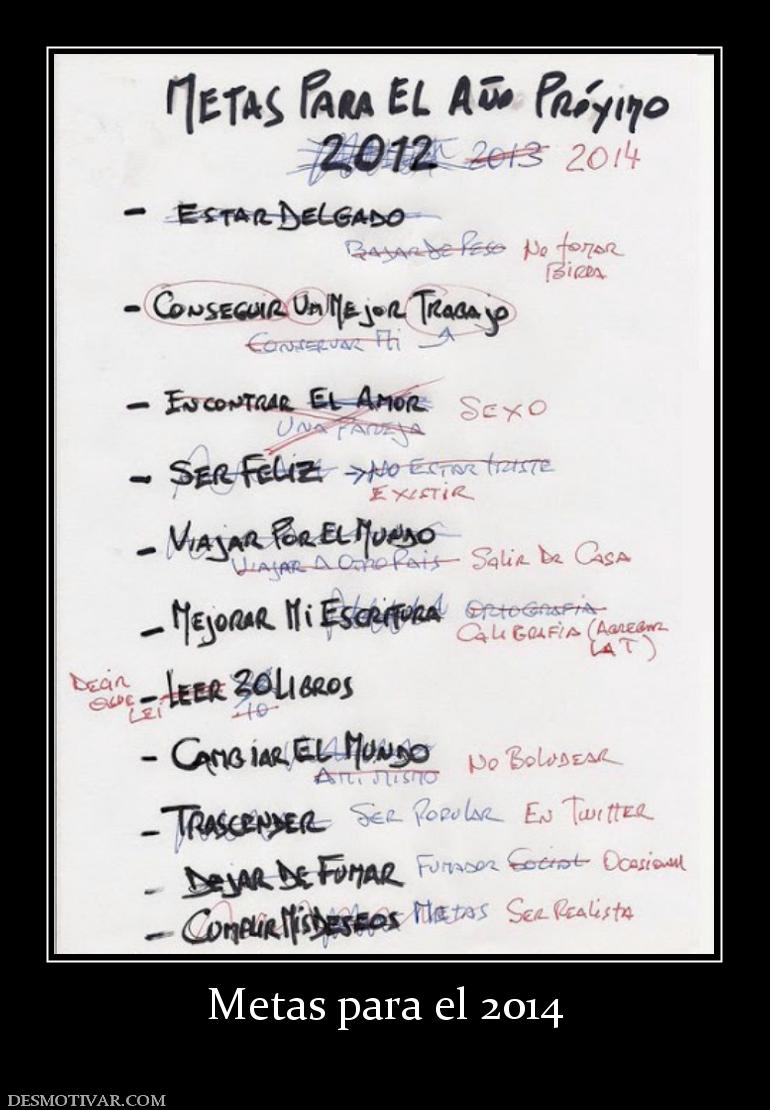 METAS PARA EL AÑO PRÓXIMO
2012 2013 2014
- ESTAR DELGADO
BAJAR DE PESO No tomar
BIRRA
- CONSEGUIR UN MEJOR TRABAJO
CONSERVAR MI
- ENCONTRAR EL AMOR SEXO
UNA PAREJA
- SER FELIZ → NO ESTAR TRISTE
EXISTIR
- VIAJAR POR EL MUNDO
VIAJAR A OTRO PAIS Salir De CASA
- MEJORAR MI ESCRITURA ORTOGRAFIA
CALIGRAFIA (AGREGAR
LA T)
DECIR
QUE
LEI
- LEER 30 LIBROS
10
- CAMBIAR EL MUNDO NO BOLUDEAR
A MI MISMO
- TRASCENDER SER POPULAR EN TWITTER
- DEJAR DE FUMAR FUMADOR SOCIAL OCASIONAL
- CUMPLIR MIS DESEOS METAS SER REALISTA
Metas para el 2014
DESMOTIVAR.COM